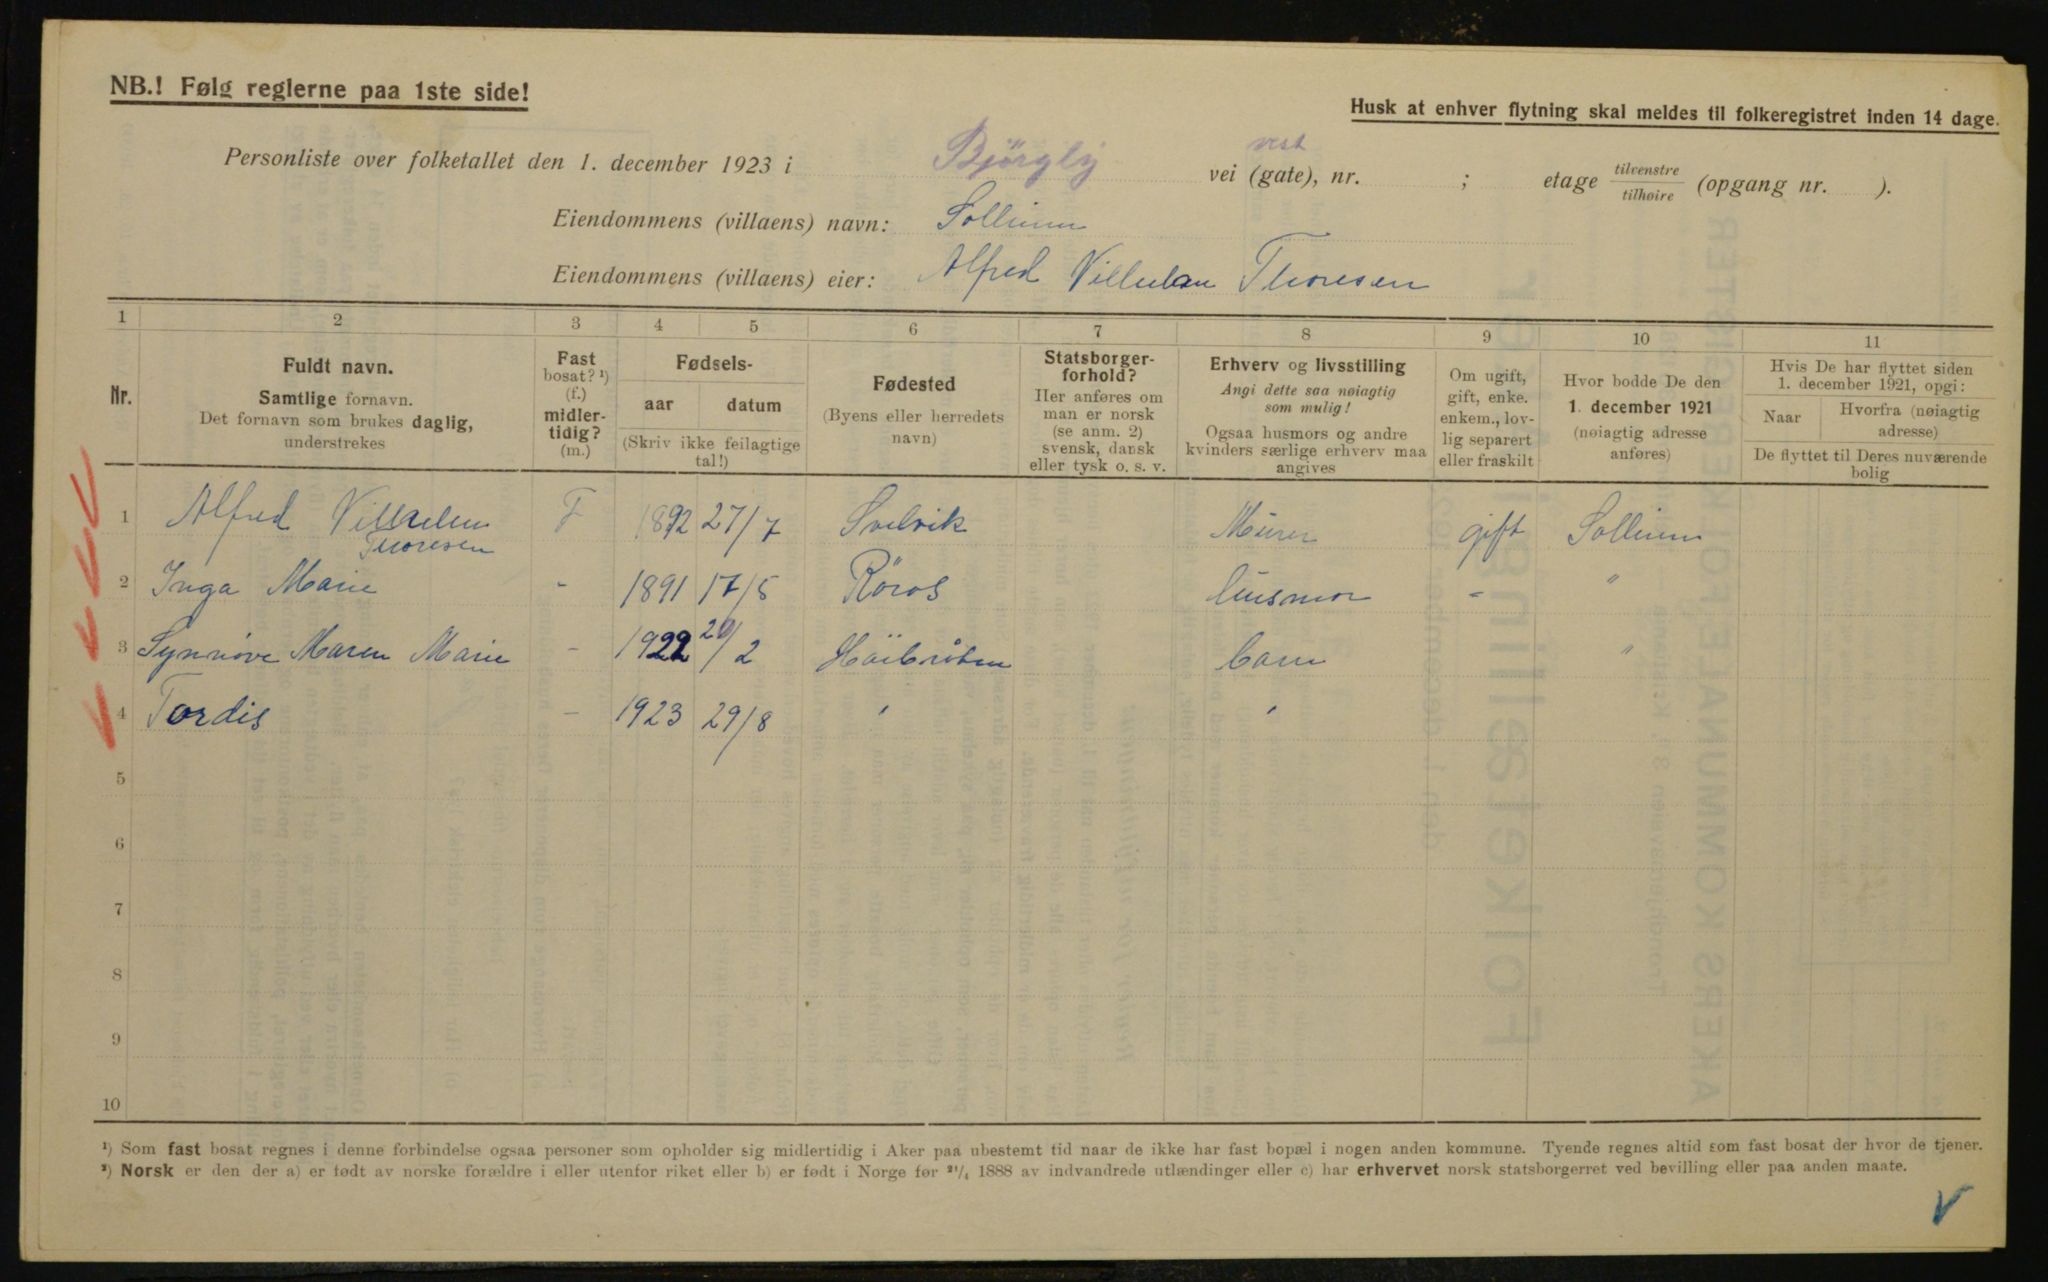 NB.! Følg reglerne paa 1ste side!
Husk at enhver flytning skal meldes til folkeregistret inden 14 dage.
Personliste over folketallet den 1. december 1923 i Bjørgly vest vei (gate), nr. ; etage tilvenstre / tilhøire (opgang nr. ).
Eiendommens (villaens) navn: Sollium
Eiendommens (villaens) eier: Alfred Villielm Thoresen
1 2 3 4 5 6 7 8 9 10 11
Nr.
Fuldt navn.
Samtlige fornavn.
Det fornavn som brukes daglig,
understrekes
Fast
bosat? ¹)
(f.)
midler-
tidig?
(m.)
Fødsels-
aar datum
(Skriv ikke feilagtige
tal!)
Fødested
(Byens eller herredets
navn)
Statsborger-
forhold?
Her anføres om
man er norsk
(se anm. 2)
svensk, dansk
eller tysk o. s. v.
Erhverv og livsstilling
Angi dette saa nøiagtig
som mulig!
Ogsaa husmors og andre
kvinders særlige erhverv maa
angives
Om ugift,
gift, enke.
enkem., lov-
lig separert
eller fraskilt
Hvor bodde De den
1. december 1921
(nøiagtig adresse
anføres)
Hvis De har flyttet siden
1. december 1921, opgi:
Naar
Hvorfra (nøiagtig
adresse)
De flyttet til Deres nuværende
bolig
1 Alfred Villielm Thoresen F 1892 27/7 Svelvik Murer gift Sollium
2 Inga Marie - 1891 17/5 Röros husmor - "
3 Synnöve Maren Marie - 1922 20/2 Höibråten barn "
4 Tordis - 1923 29/8 " "
5
6
7
8
9
10
¹) Som fast bosat regnes i denne forbindelse ogsaa personer som opholder sig midlertidig i Aker paa ubestemt tid naar de ikke har fast bopæl i nogen anden kommune. Tyende regnes altid som fast bosat der hvor de tjener.
²) Norsk er den der a) er født av norske forældre i eller utenfor riket eller b) er født i Norge før ²¹/₄ 1888 av indvandrede utlændinger eller c) har erhvervet norsk statsborgerret ved bevilling eller paa anden maate.